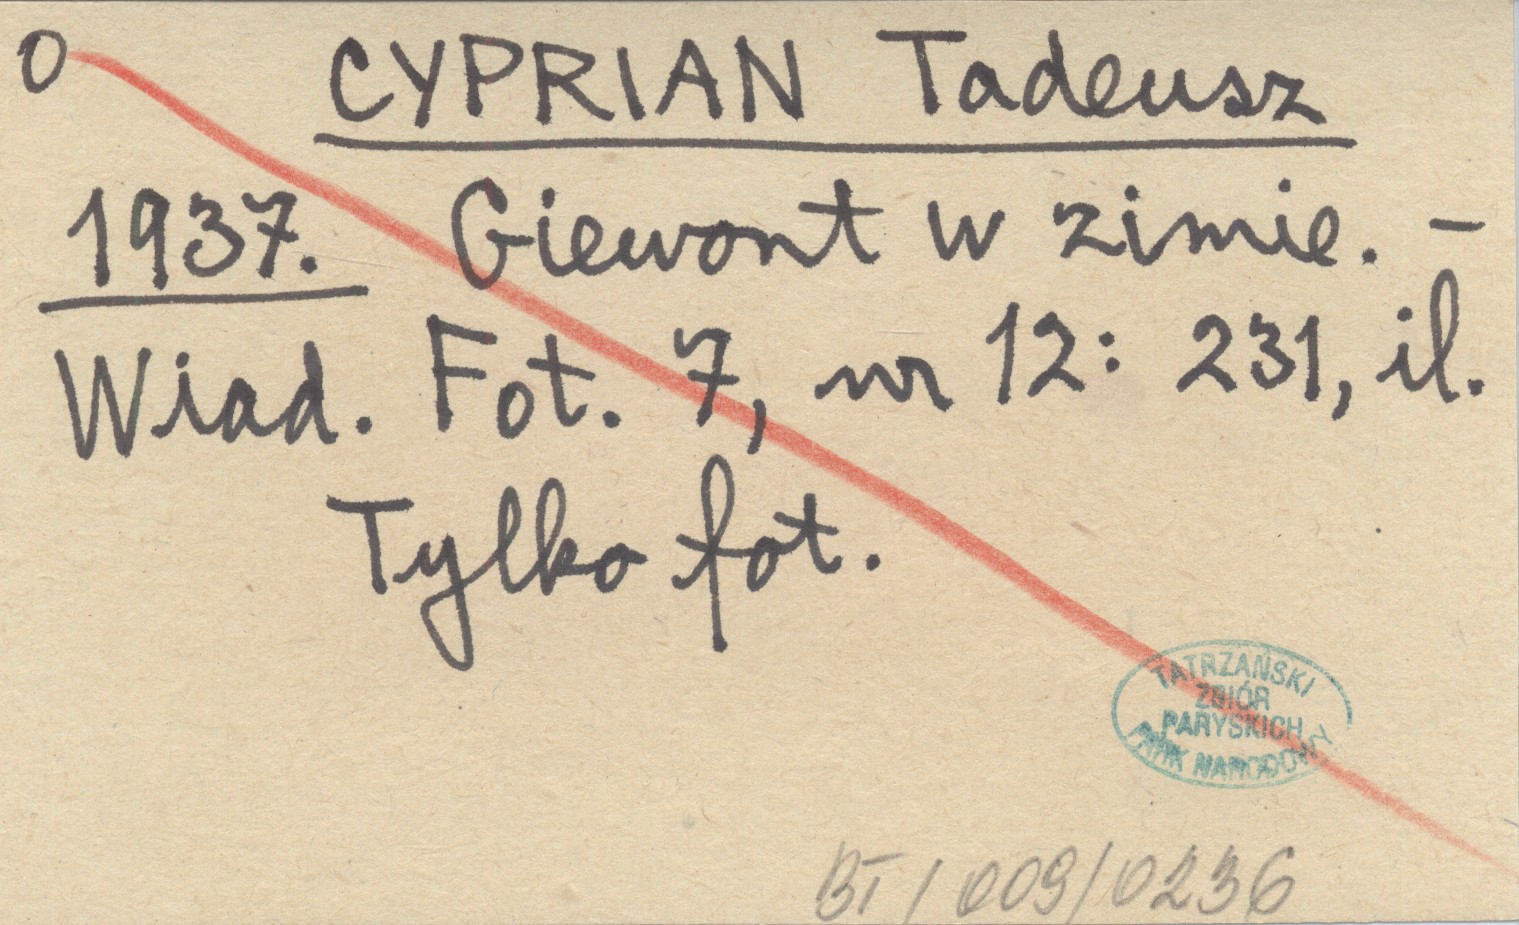 0 CYPRIAN Tadeusz
1937. Giewont w zimie. –
Wiad. Fot. 7, nr 12: 231, il.
Tylko fot.
TATRZAŃSKI
ZBIÓR
PARYSKICH
PARK NARODOWY
BT / 009/0236